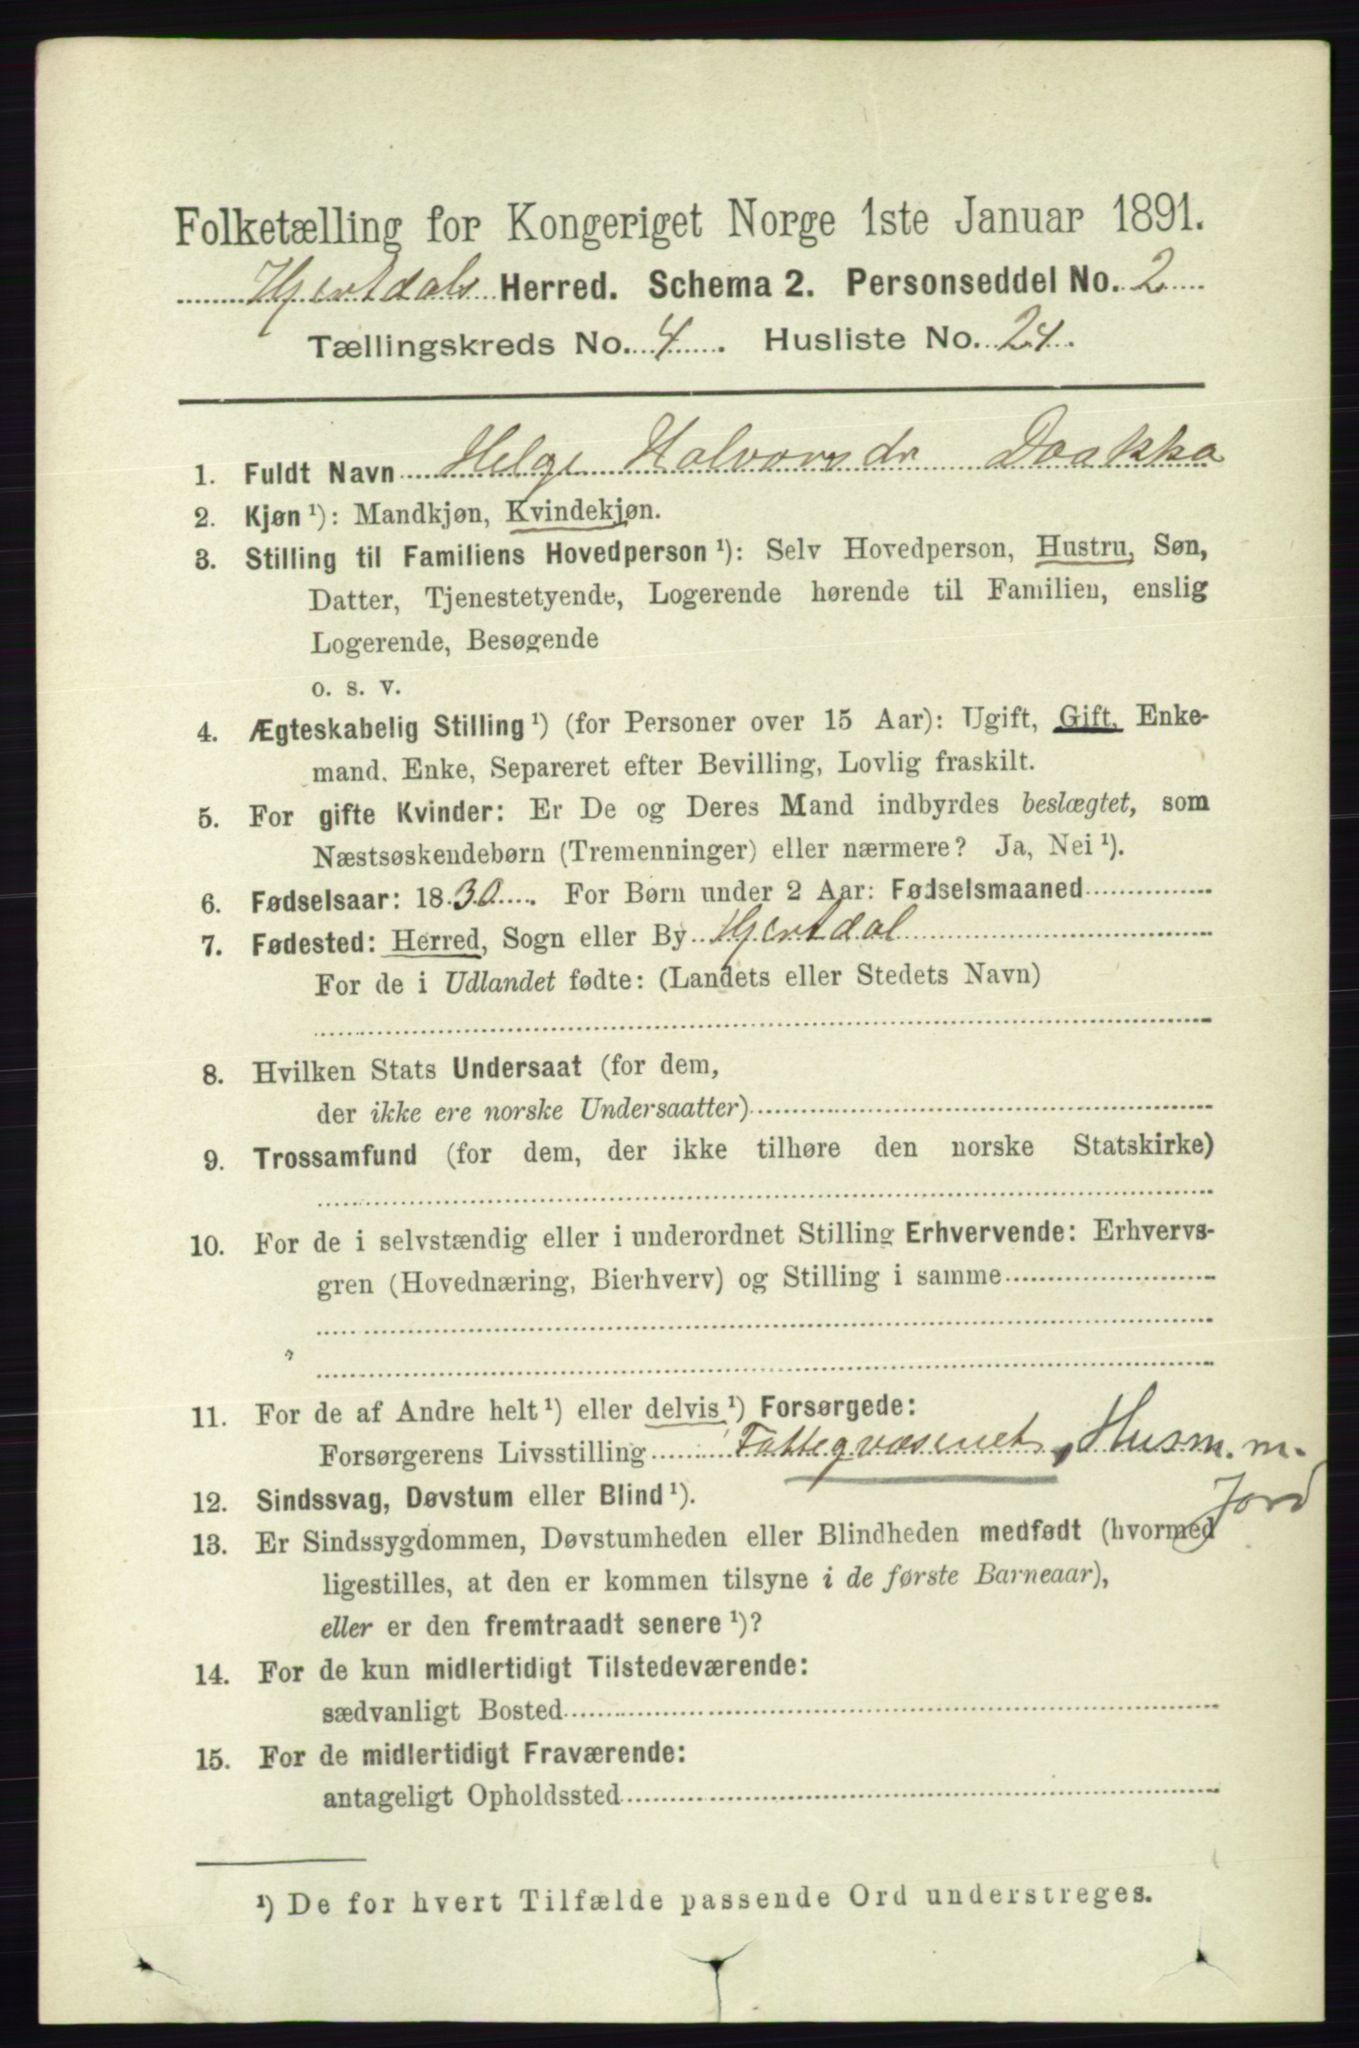 Folketælling for Kongeriget Norge 1ste Januar 1891.
Hjertdals Herred. Schema 2. Personseddel No. 2
Tællingskreds No. 4. Husliste No. 24.
1. Fuldt Navn Helge Halvorsdr Daakka
2. Kjøn ¹): Mandkjøn, Kvindekjøn.
3. Stilling til Familiens Hovedperson ¹): Selv Hovedperson, Hustru, Søn,
Datter, Tjenestetyende, Logerende hørende til Familien, enslig
Logerende, Besøgende
o. s. v.
4. Ægteskabelig Stilling ¹) (for Personer over 15 Aar): Ugift, Gift, Enke-
mand, Enke, Separeret efter Bevilling, Lovlig fraskilt.
5. For gifte Kvinder: Er De og Deres Mand indbyrdes beslægtet, som
Næstsøskendebørn (Tremenninger) eller nærmere? Ja, Nei ¹).
6. Fødselsaar: 1830. For Børn under 2 Aar: Fødselsmaaned
7. Fødested: Herred, Sogn eller By Hjertdal
For de i Udlandet fødte: (Landets eller Stedets Navn)
8. Hvilken Stats Undersaat (for dem,
der ikke ere norske Undersaatter)
9. Trossamfund (for dem, der ikke tilhøre den norske Statskirke)
10. For de i selvstændig eller i underordnet Stilling Erhvervende: Erhvervs-
gren (Hovednæring, Bierhverv) og Stilling i samme
11. For de af Andre helt ¹) eller delvis ¹) Forsørgede:
Forsørgerens Livsstilling Fattegvæsenet, Husm. m.
Jord
12. Sindssvag, Døvstum eller Blind ¹).
13. Er Sindssygdommen, Døvstumheden eller Blindheden medfødt (hvormed
ligestilles, at den er kommen tilsyne i de første Barneaar),
eller er den fremtraadt senere ¹)?
14. For de kun midlertidigt Tilstedeværende:
sædvanligt Bosted
15. For de midlertidigt Fraværende:
antageligt Opholdssted
¹) De for hvert Tilfælde passende Ord understreges.